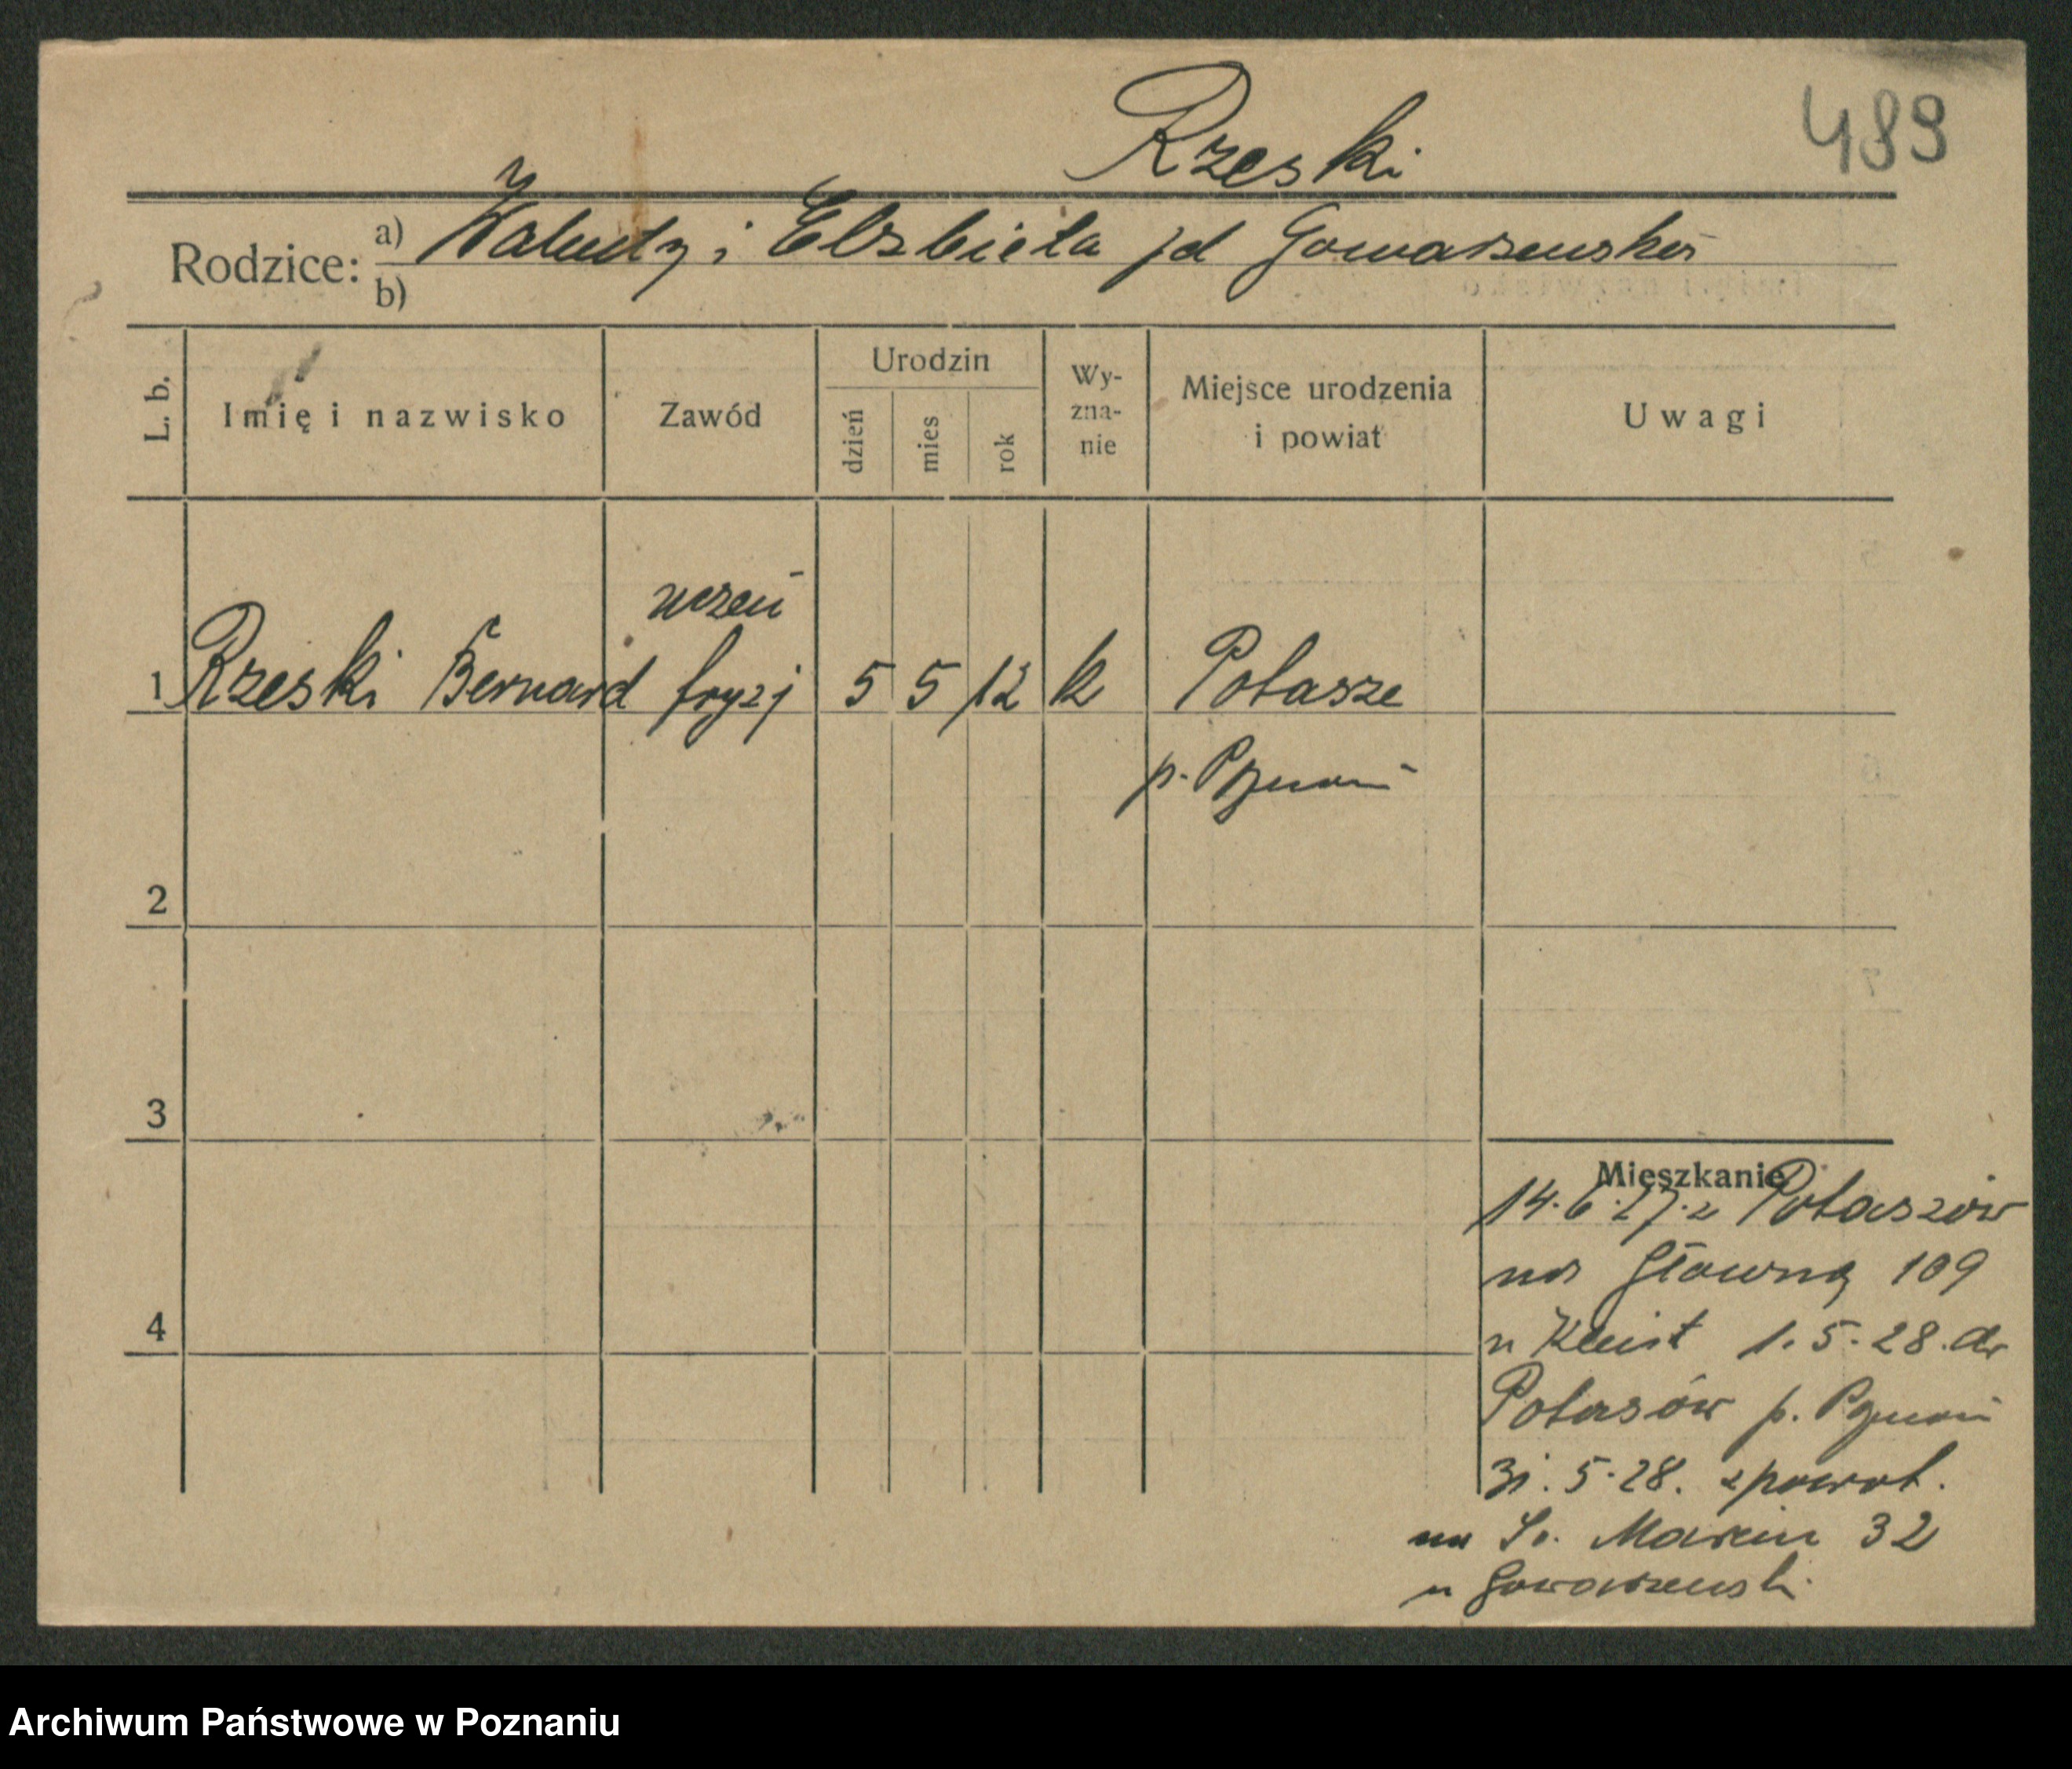 Rzeski
489
Rodzice: a) Walenty i Elzbieta zd Gowarzewska
b)
L. b.
Imię i nazwisko
Zawód
Urodzin
dzień
mies
rok
Wy-
zna-
nie
Miejsce urodzenia
i powiat
Uwagi
uczeń
1 Rzeski Bernard fryzj 5 5 12 k Potasze
p. Poznań
2
3
4
Mieszkanie
14.6.27. z Potaszów
na Główną 109
u Kleist 1.5.28. do
Potasów p. Poznań
31.5.28. zpowrot.
na Św. Marcin 32
u Gowarzewski
Archiwum Państwowe w Poznaniu